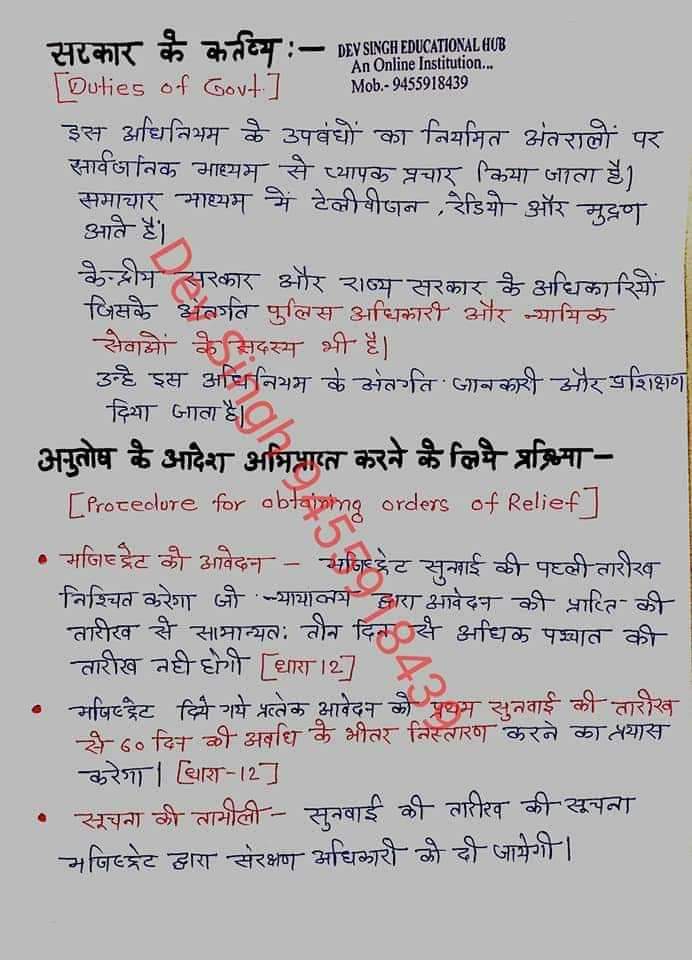 सरकार के कर्तव्य :-
DEV SINGH EDUCATIONAL HUB
An Online Institution...
Mob.- 9455918439
[Duties of Govt.]
इस अधिनियम के उपबंधों का नियमित अंतरालों पर
सार्वजनिक माध्यम से व्यापक प्रचार किया जाता है।
समाचार माध्यम में टेलीवीजन , रेडियो और मुद्रण
आते हैं।
केन्द्रीय सरकार और राज्य सरकार के अधिकारियों
जिसके अंतर्गत पुलिस अधिकारी और न्यायिक
सेवाओं के सदस्य भी है।
उन्हे इस अधिनियम के अंतर्गत जानकारी और प्रशिक्षण
दिया जाता है।
अनुतोष के आदेश अभिप्राप्त करने के लिये प्रक्रिया -
[Procedure for obtaining orders of Relief]
• मजिस्ट्रेट को आवेदन - मजिस्ट्रेट सुनवाई की पहली तारीख
निश्चित करेगा जो न्यायालय द्वारा आवेदन की प्राप्ति की
तारीख से सामान्यत: तीन दिन से अधिक पश्चात की
तारीख नही होगी [धारा 12]
• मजिस्ट्रेट दिये गये प्रत्येक आवेदन को प्रथम सुनवाई की तारीख
से 60 दिन की अवधि के भीतर निस्तारण करने का प्रयास
करेगा। [धारा-12]
• सूचना की तामीली - सुनवाई की तारीख की सूचना
मजिस्ट्रेट द्वारा संरक्षण अधिकारी को दी जायेगी।
Dev Singh 9455918439